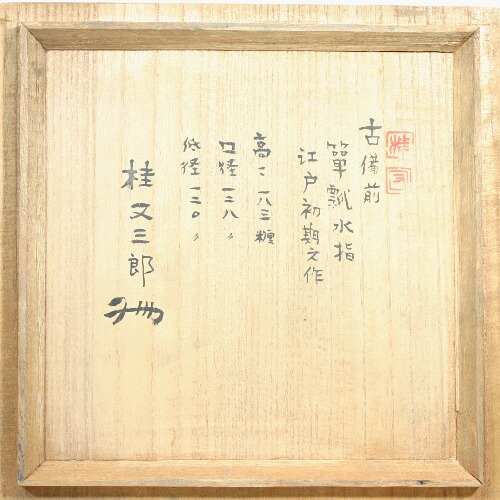 古備前
簞瓢水指
江戸初期之作
高さ 一八三糎
口径 一三八〃
低径 一三〇〃
桂又三郎